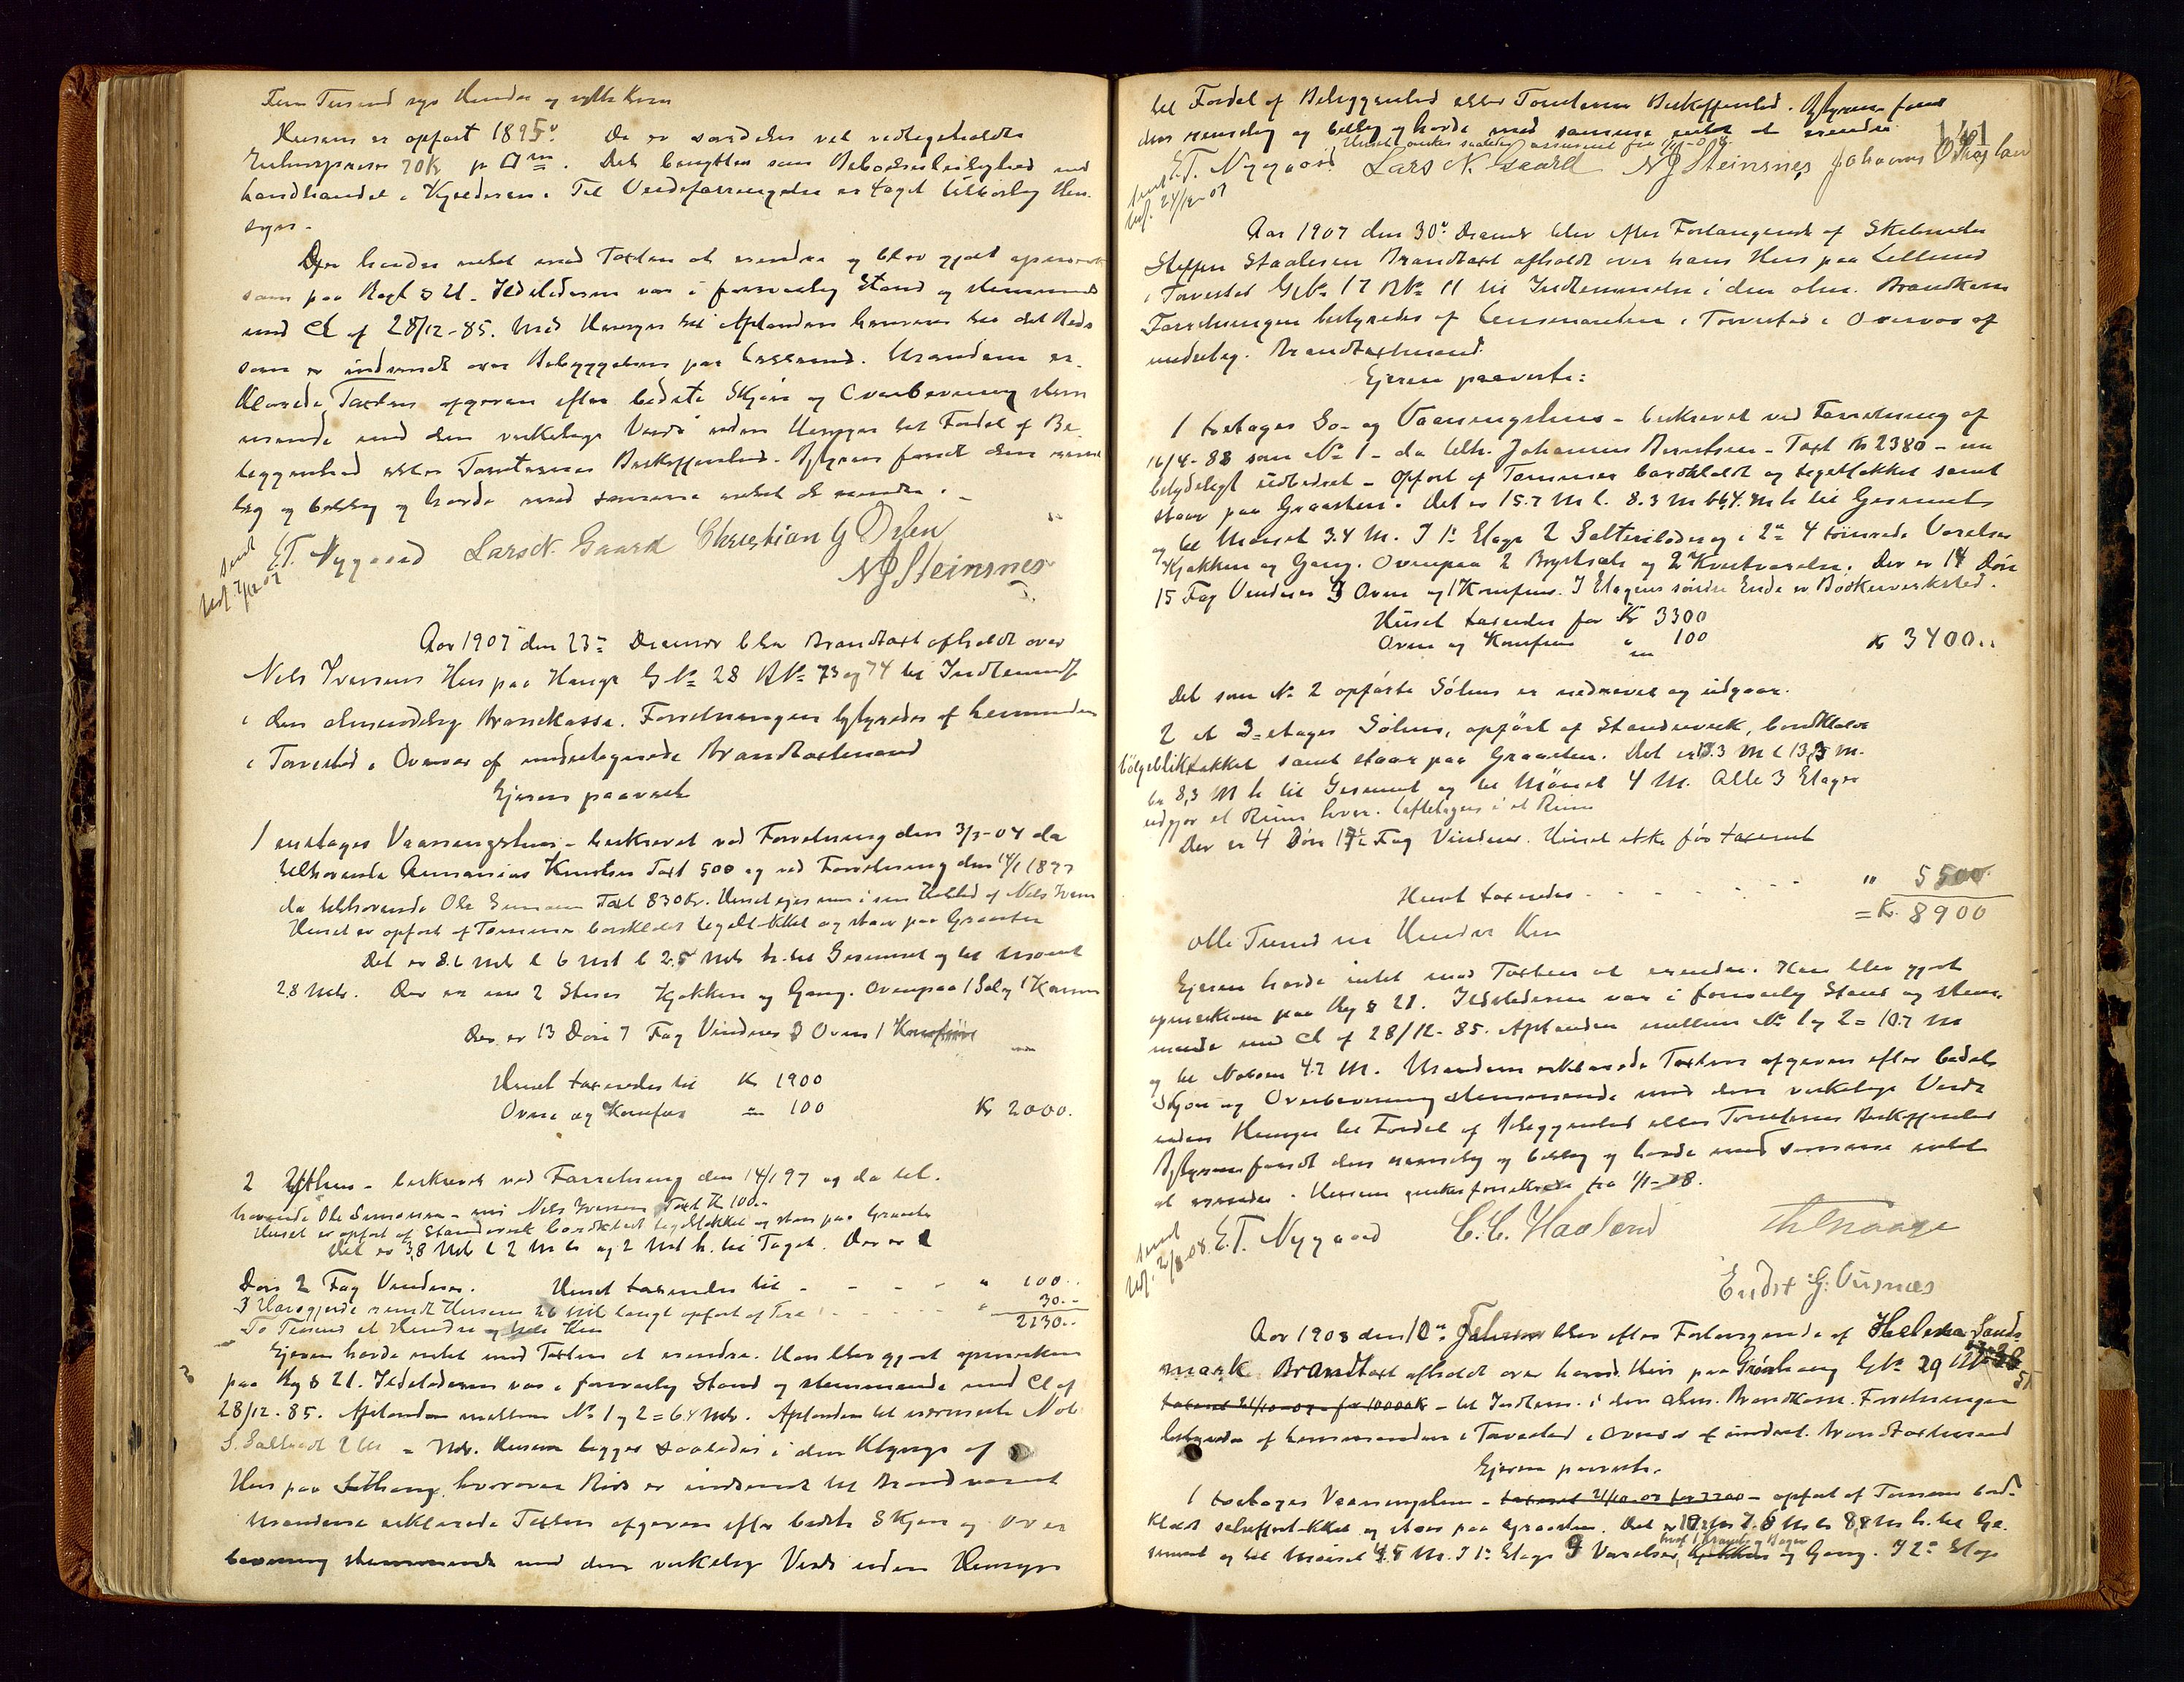 Fem Tusend syv Hundre og                Kroner
Husene er opført 1895. De er særdeles vel vedligeholdte
Enhedsprisen 20 Kr pr □m. Det benyttes som Beboelsesleilighed med
landhandel i Kjelderen. Til Verdiforringelse er taget tilbørlig Hen-
syn.
Eier havde intet mod Taxten at erindre og blev gjort opmerksom
som paa Regl § 21. Ildstederne var i forsvarlig Stand og stemmende
med Cl af 28/12-85. Med Hensyn til Afstanden henvises til det Rids
som er indsendt over Bebyggelsen paa       . Mændene er-
klærede Taxten afgiven efter bedste Skjøn og Overbevisning stem
mende med den virkelige Værdi uden Hensyn til Fordel af Be-
liggenhed eller Tomternes Beskaffenhed. Bestyreren fandt den rime
lig og billig og havde mod samme intet at erindre. -
E.T. Nygaard Lars N. Gaard Christian G Ørlen
NJ Steinsnes
Send
Udf. 7/12 07
Aar 1907 den 23de Decembr blev Brandtaxt afholdt over
Nels Iversens Hus paa Hauge G No 28 B No 73 og 74 til Indlemmelse
i den almindelig Brandkasse. Forretningen bestyredes af Lensmanden
i Torvested i Overvær af undertegnede Brandtaxtmænd
Ejeren paaviste
1 enetages Vaaningshus - beskrevet ved Forretning den 3/3-04 da
tilhørende Ananias Knutsen Taxt 500 og ved Forretning den 14/1 1897
da tilhørende Ole Simonsen Taxt 830 Kr. Huset ejes nu i sin Helhed af Nels Iversen
Huset er opført af Tømmer bordklædt tegeltækket og staar paa Graasten
Det er 8.6 Mtr l 6 Mtr b 2.5 Mtr h. til Gesimset og til Mønet
2,8 Mtr. Der er nu 2 Stuer Kjøkken og Gang. Ovenpaa 1 Sal og 1 Kammer
Der er 13 Døre 7 Fag Vinduer 3 Ovne 1 Komfur
Huset taxeredes til Kr 1900
Ovne og Komfur " 100 Kr 2000.
2 Uthus - beskrevet ved Forretning den 14/1 97 og da til-
hørende Ole Simonsen - nu Nels Iversen Taxt Kr 100.-
Huset er opført af Standerverk bordklædt tegeltækket og staar paa Graasten
Det er 3,8 Mtr l 2 Mtr b og 2 Mtr h. til Taget. Der er 2
Døre 2 Fag Vinduer. Huset taxeredes til - - - - " 100..
3 Havegjerde rundt Husene 26 Mtr langt opført af Træ - - - " 30.-
To Tusend et Hundre og tredve Kr 2130..
Ejeren havde intet mod Taxten at erindre. Han blev gjort opmerksom
paa Reg § 21. Ildstederne var i forsvarlig Stand og stemmende med Cl af
28/12-85. Afstanden mellem No 1 og 2 = 6.4 Mtr. Afstanden til nærmeste Nabo
S. Salhus         Mtr. Husene ligger saaledes i den Klynge af
Hus paa        Hauge, hvorover Rids er indsendt til Brandvæsenet
Mændene erklærede Taxten afgiven efter bedste Skjøn og Over
bevisning stemmende med den virkelig Verdi uden Hensyn
141
til Fordel af Beliggenhed eller Tomternes Beskaffenhed. Bestyreren fandt
den rimelig og billig og havde mod samme intet at erindre.
Huset ønskes saaledes assureret fra 1/1-08
E.T. Nygaard Lars N. Gaard NJ Steinsnes Johannes
Send
Udf. 24/12-07
Aar 1907 den 30te Decembr blev efter Forlangende af Skibsreder
Steffen Staalesen Brandtaxt afholdt over hans Hus paa Lillesund
i Torvested G No 17 B No 11 til Indlemmelse i den alm. Brandkasse
Forretningen bestyredes af Lensmanden i Torvested i Overvær af
underteg. Brandtaxtmænd.
Ejeren paaviste:
1 toetages Sø- og Vaaningshus - beskrevet ved Forretning af
16/4-88 som No 1 - da tilh. Johannes Berntsen - Taxt Kr 2380 - nu
betydeligt udbedret - Opført af Tømmer bordklædt og tegeltækket samt
staar paa Graasten. Det er 15.7 M l. 8.3 M b 6,4 M h til Gesimset
og til Mønet 3.4 M. I 1ste Etage 2 Salterilader og i 2den 4 tømrede Værelser
Kjøkken og Gang. Ovenpaa 2 Brystsale og 2 Kvistværelser. Der er 14 Døre
15 Fag Vinduer 3 Ovne og 1 Komfur. I Etagens søndre Ende er Bødkerverksted.
Huset taxeredes for Kr 3300
Ovne og Komfur " 100 Kr 3400..
Det som No 2 opførte Søhus er nedrevet og udgaar.
2 et 3-etages Søhus, opført af Standerverk, bordklædt
bølgebliktækket samt staar paa Graasten. Det er       3 M l 13,5 M.
br 8,3 M h til Gesimset og til Mønet 4 M. Alle 3 Etager
udgjør et Rum hver. Lofteetagen i et Rum
Der er 4 Døre 17½ Fag Vinduer. Huset ikke før taxeret
Huset taxeredes - - - - - - " 5500.
= Kr. 8900
Otte Tusend ni Hundre Kr
Ejeren havde intet mod Taxten at erindre. Han blev gjort
opmerksom paa Reg § 21. Ildstederne var i forsvarlig Stand og stem-
mende med Cl af 28/12-85. Afstanden mellem No 1 og 2 = 10.7 M
og til Naboen 4.7 M. Mændene erklærede Taxten afgiven efter bedste
Skjøn og Overbevisning stemmende med den virkelige Værdi
uden Hensyn til Fordel af Beliggenhed eller Tomternes Beskaffenhed
Bestyreren fandt den rimelig og billig og havde mod samme intet
at erindre. Husene ønskes forsikrede fra 1/1-08.
E.T. Nygaard C.C. Haaland
Send
Udf. 2/1-08
Endre G.
Aar 1908 den 10de Februar blev efter Forlangende af Helena Sands-
mark Brandtaxt afholdt over hans Hus paa Grønhaug G No 29 B No
51
taxeret 21/10-07 for 10000 Kr - til Indlem. i den alm. Brandkasse. Forretningen
bestyredes af Lensmanden i Torvested i Overvær af undert. Brandtaxtmænd
Ejeren paaviste.
1 toetages Vaaningshus - taxeret 21/10-07 for 7200 - opført af Tømmer bord-
klædt            tækket og staar paa Graasten. Det er 10,2 M l 7.8 M b 8,8 M h. til Ge-
simset og til Mønet 4.5 M. I 1ste Etage 3 Værelser, Kjøkken og Gang. I 2den Etage